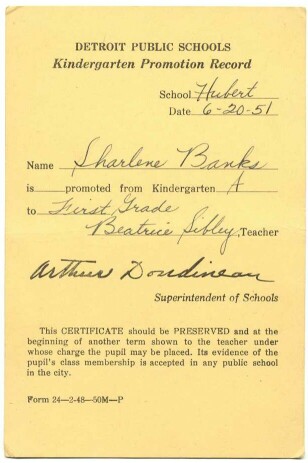 DETROIT PUBLIC SCHOOLS
Kindergarten Promotion Record
School Hubert
Date 6-20-51
Name Sharlene Banks
is promoted from Kindergarten A
to First Grade
Beatrice Sibley, Teacher
Arthur Dondineau
Superintendent of Schools
This CERTIFICATE should be PRESERVED and at the
beginning of another term shown to the teacher under
whose charge the pupil may be placed. Its evidence of the
pupil's class membership is accepted in any public school
in the city.
Form 24—2-48—50M—P